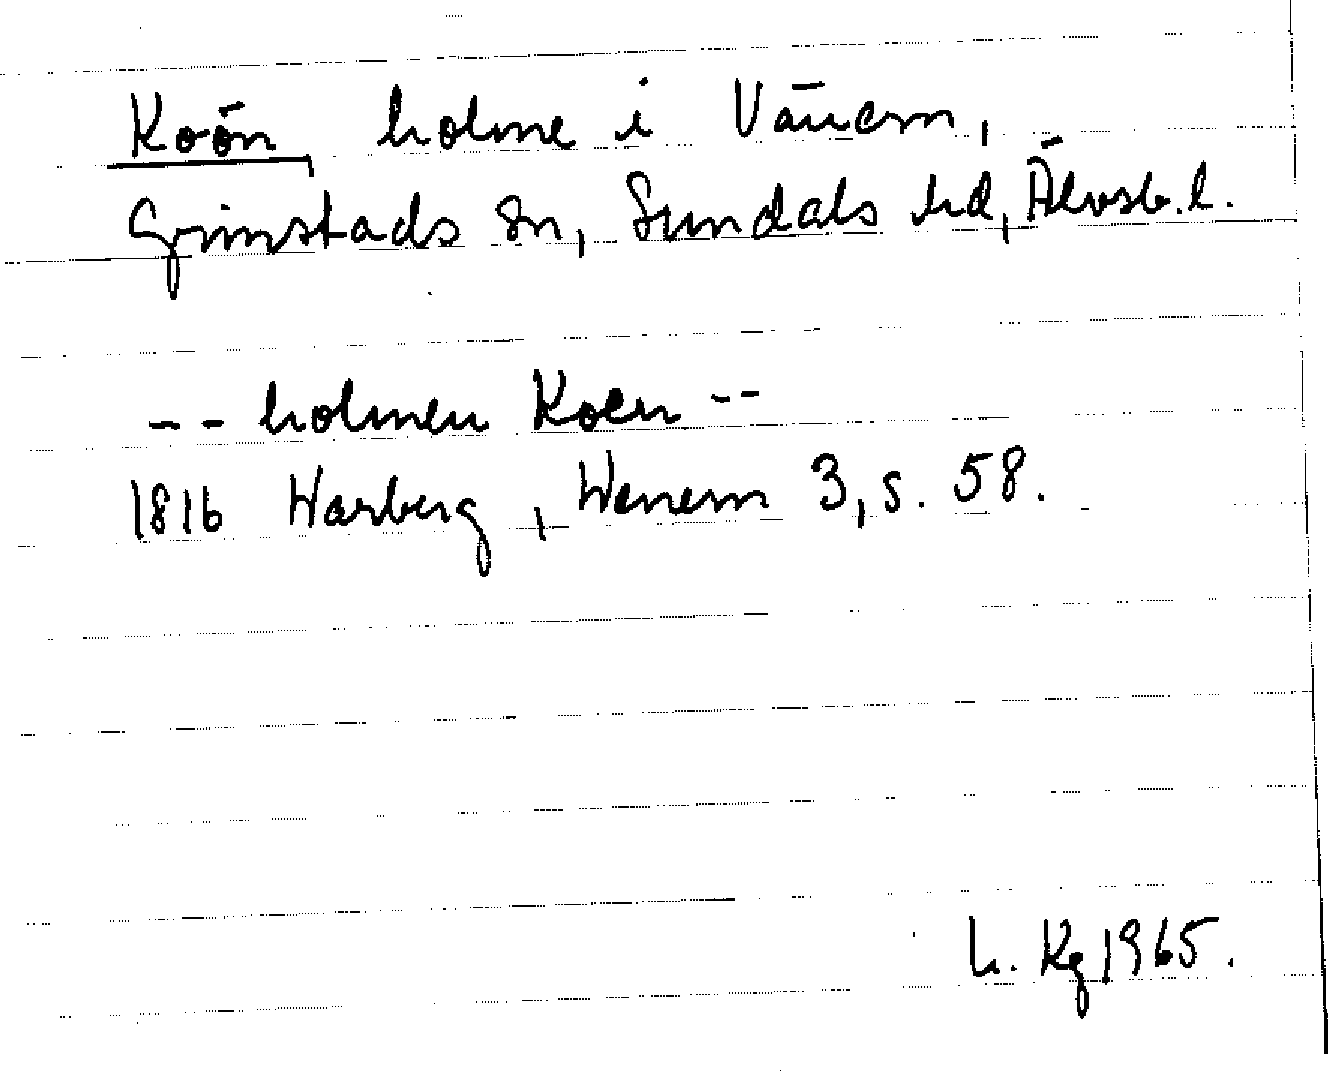 Koön, holme i Vänern,
Grinstads sn, Sundals hd, Älvsb. l.
-- holmen Koen --
1816 Warberg, Wenern 3, s. 58.
h. Kg 1965.